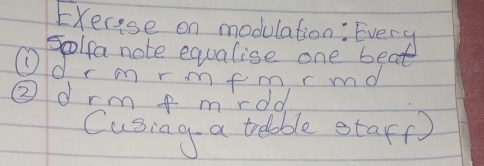 Exercise on modulation: Every
Solfa note equalise one beat
① d r m r m f m r m d
② d r m f m r d d
(using a trebble staff)